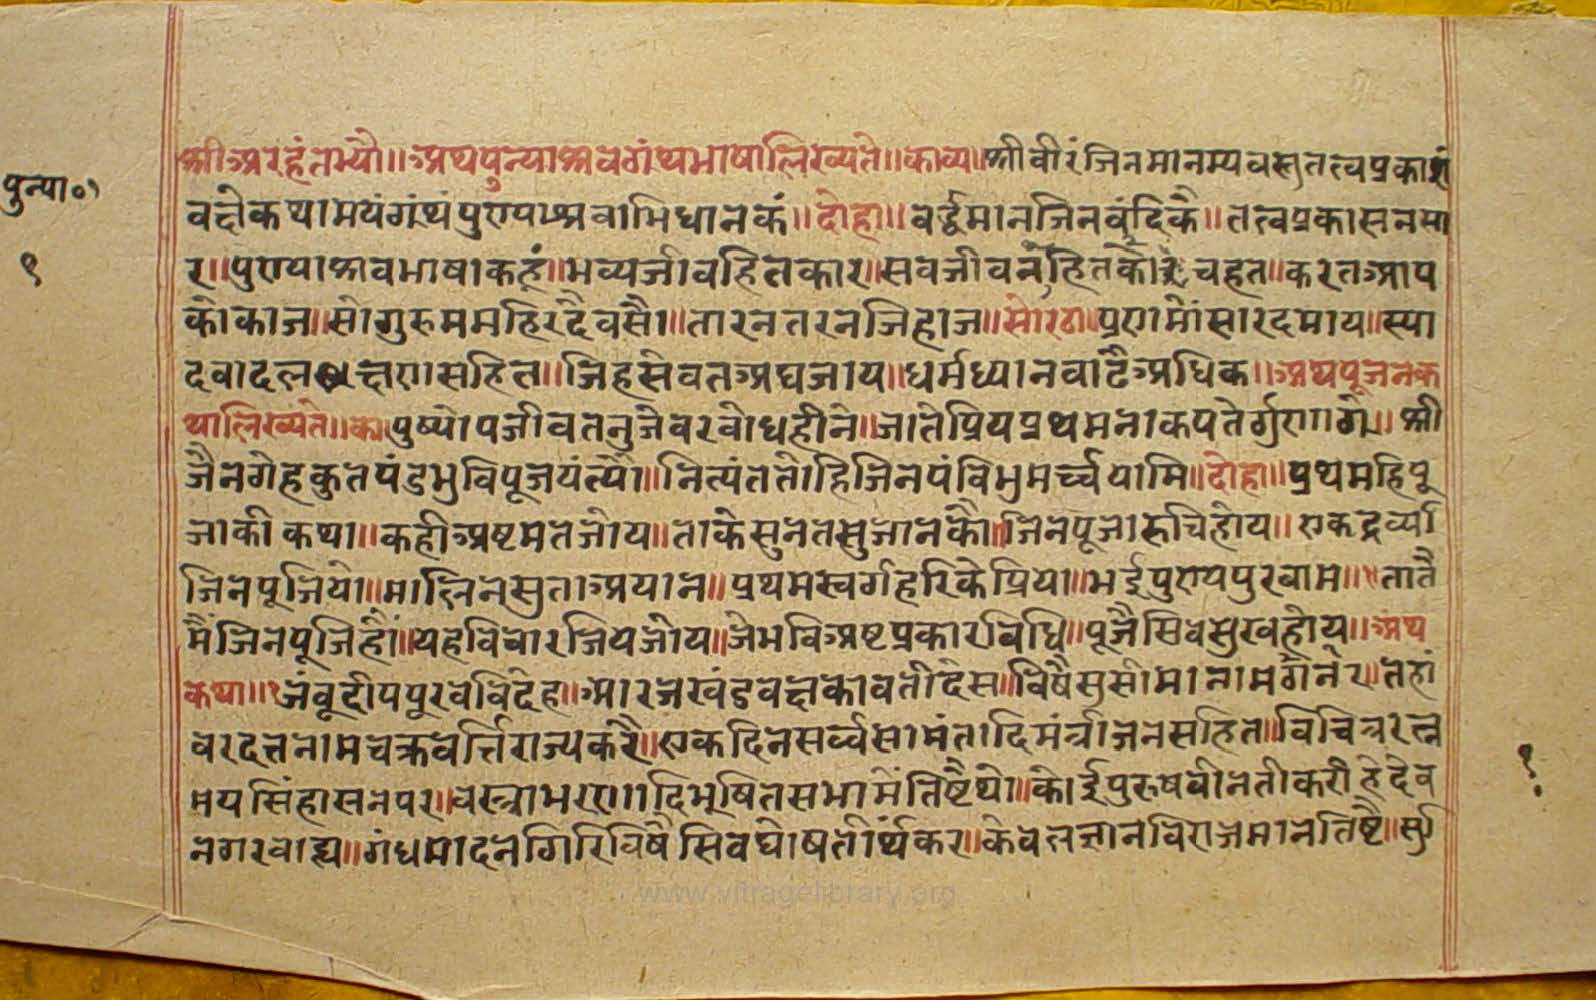 श्रीअरहंतभ्यो॥ अथपुन्याश्रवग्रंथभाषालिख्यते॥ काव्य॥ श्रीवीरंजिनमानम्यवस्तुतत्त्वप्रकाशं
पुन्या०१
वक्षेकथामयंग्रंथंपुण्याश्रवाभिधानकं॥ दोहा॥ वर्द्धमानजिनवंदिकै॥ तत्वप्रकासनसा
१
र॥ पुण्याश्रवभाषाकहूं॥ भव्यजीवहितकार॥ सवजीवनहितकों चहत॥ करतआप
कोकाज॥ सोगुरुममहिरदैवसौ॥ तारनतरनजिहाज॥ सोरठा॥ प्रणमोंसारदमाय॥ स्या
दवादलक्षणसहित॥ जिहसेवतअघजाय॥ धर्मध्यानवाढैअधिक॥ अथपूजनक
थालिख्यते॥ का पुष्योपजीवतनुजेवरवोधहीने॥ जातेप्रियप्रथमनाकपतेर्गुणाग्रे॥ श्री
जैनगेहकुतपंडभुविपूजयंत्यौ॥ नित्यंततोहिजिनपंविभुमर्च्चयामि॥ दोहा॥ प्रथमहिपू
जाकीकथा॥ कहीअष्टमतजोय॥ ताकेसुनतसुजानकौ॥ जिनपूजारुचिहोय॥ एकद्रव्यों
जिनपूजियो॥ मालिनसुताअयान॥ प्रथमस्वर्गहरिकेप्रिया॥ भईपुण्यपुरवाम॥ तातै
मैंजिनपूजिहौं॥ यहविचारजियजोय॥ जेभविअष्टप्रकारविधि॥ पूजैसिवसुखहोय॥ अथ
कथा॥ जंवूदीपपूरवविदेह॥ आरजखंडवक्षकावतीदेस॥ विषैसुसीमानामनगर॥ तहां
वरदत्तनामचक्रवर्त्तिराज्यकरै॥ एकदिनसर्व्वसामंतादिमंत्रीजनसहित॥ विचित्ररत्न
मयसिंहासनपर॥ वस्त्राभरणादिभूषितसभामेंतिष्टैथो॥ कोईपुरुषवीनतीकरीहेदेव
१
नगरवाह्य॥ गंधमादनगिरिविषैसिवघोषतीर्थंकर॥ केवलज्ञानविराजमानतिष्टै॥
www.vitragelibrary.org